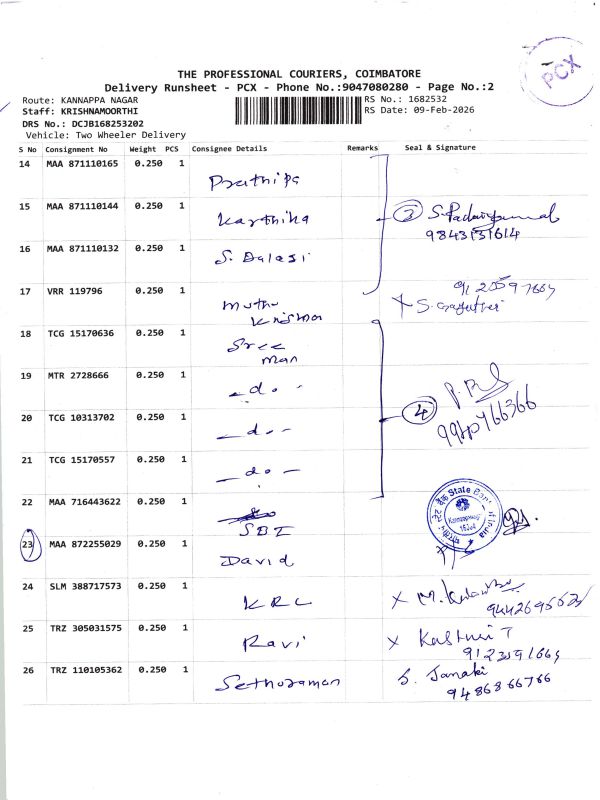 PCX
THE PROFESSIONAL COURIERS, COIMBATORE
Delivery Runsheet - PCX - Phone No.:9047080280 - Page No.:2
Route: KANNAPPA NAGAR
RS No.: 1682532
Staff: KRISHNAMOORTHI
RS Date: 09-Feb-2026
DRS No.: DCJB168253202
Vehicle: Two Wheeler Delivery
S No Consignment No Weight PCS Consignee Details Remarks Seal & Signature
14 MAA 871110165 0.250 1 Prathipa
15 MAA 871110144 0.250 1 Karthika
3
9843131614
16 MAA 871110132 0.250 1 S. Balaji
17 VRR 119796 0.250 1 muthu
Krishna
18 TCG 15170636 0.250 1 Sree
man
19 MTR 2728666 0.250 1 - do. -
4
20 TCG 10313702 0.250 1 - do. -
21 TCG 15170557 0.250 1 - do. -
22 MAA 716443622 0.250 1
SBI
State Bank
23 MAA 872255029 0.250 1 David
24 SLM 388717573 0.250 1 KRC
25 TRZ 305031575 0.250 1 Ravi
26 TRZ 110105362 0.250 1 Sethuraman
S. Janaki
9486866766